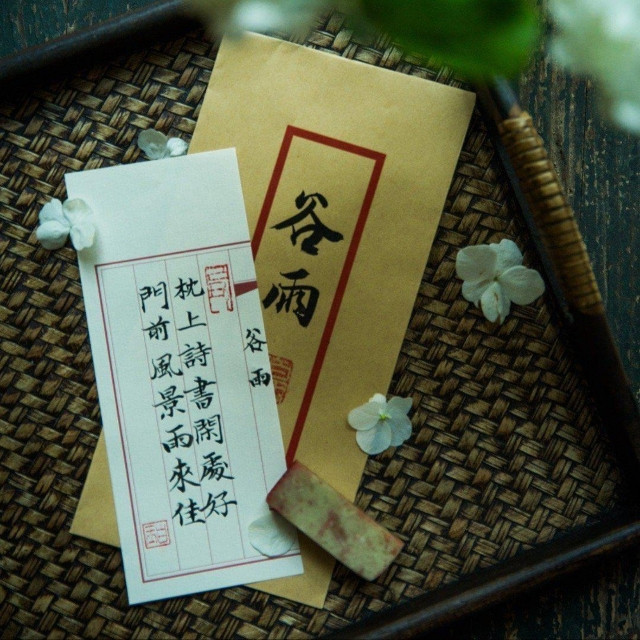 谷雨
谷雨
枕上詩書閒處好
門前風景雨來佳